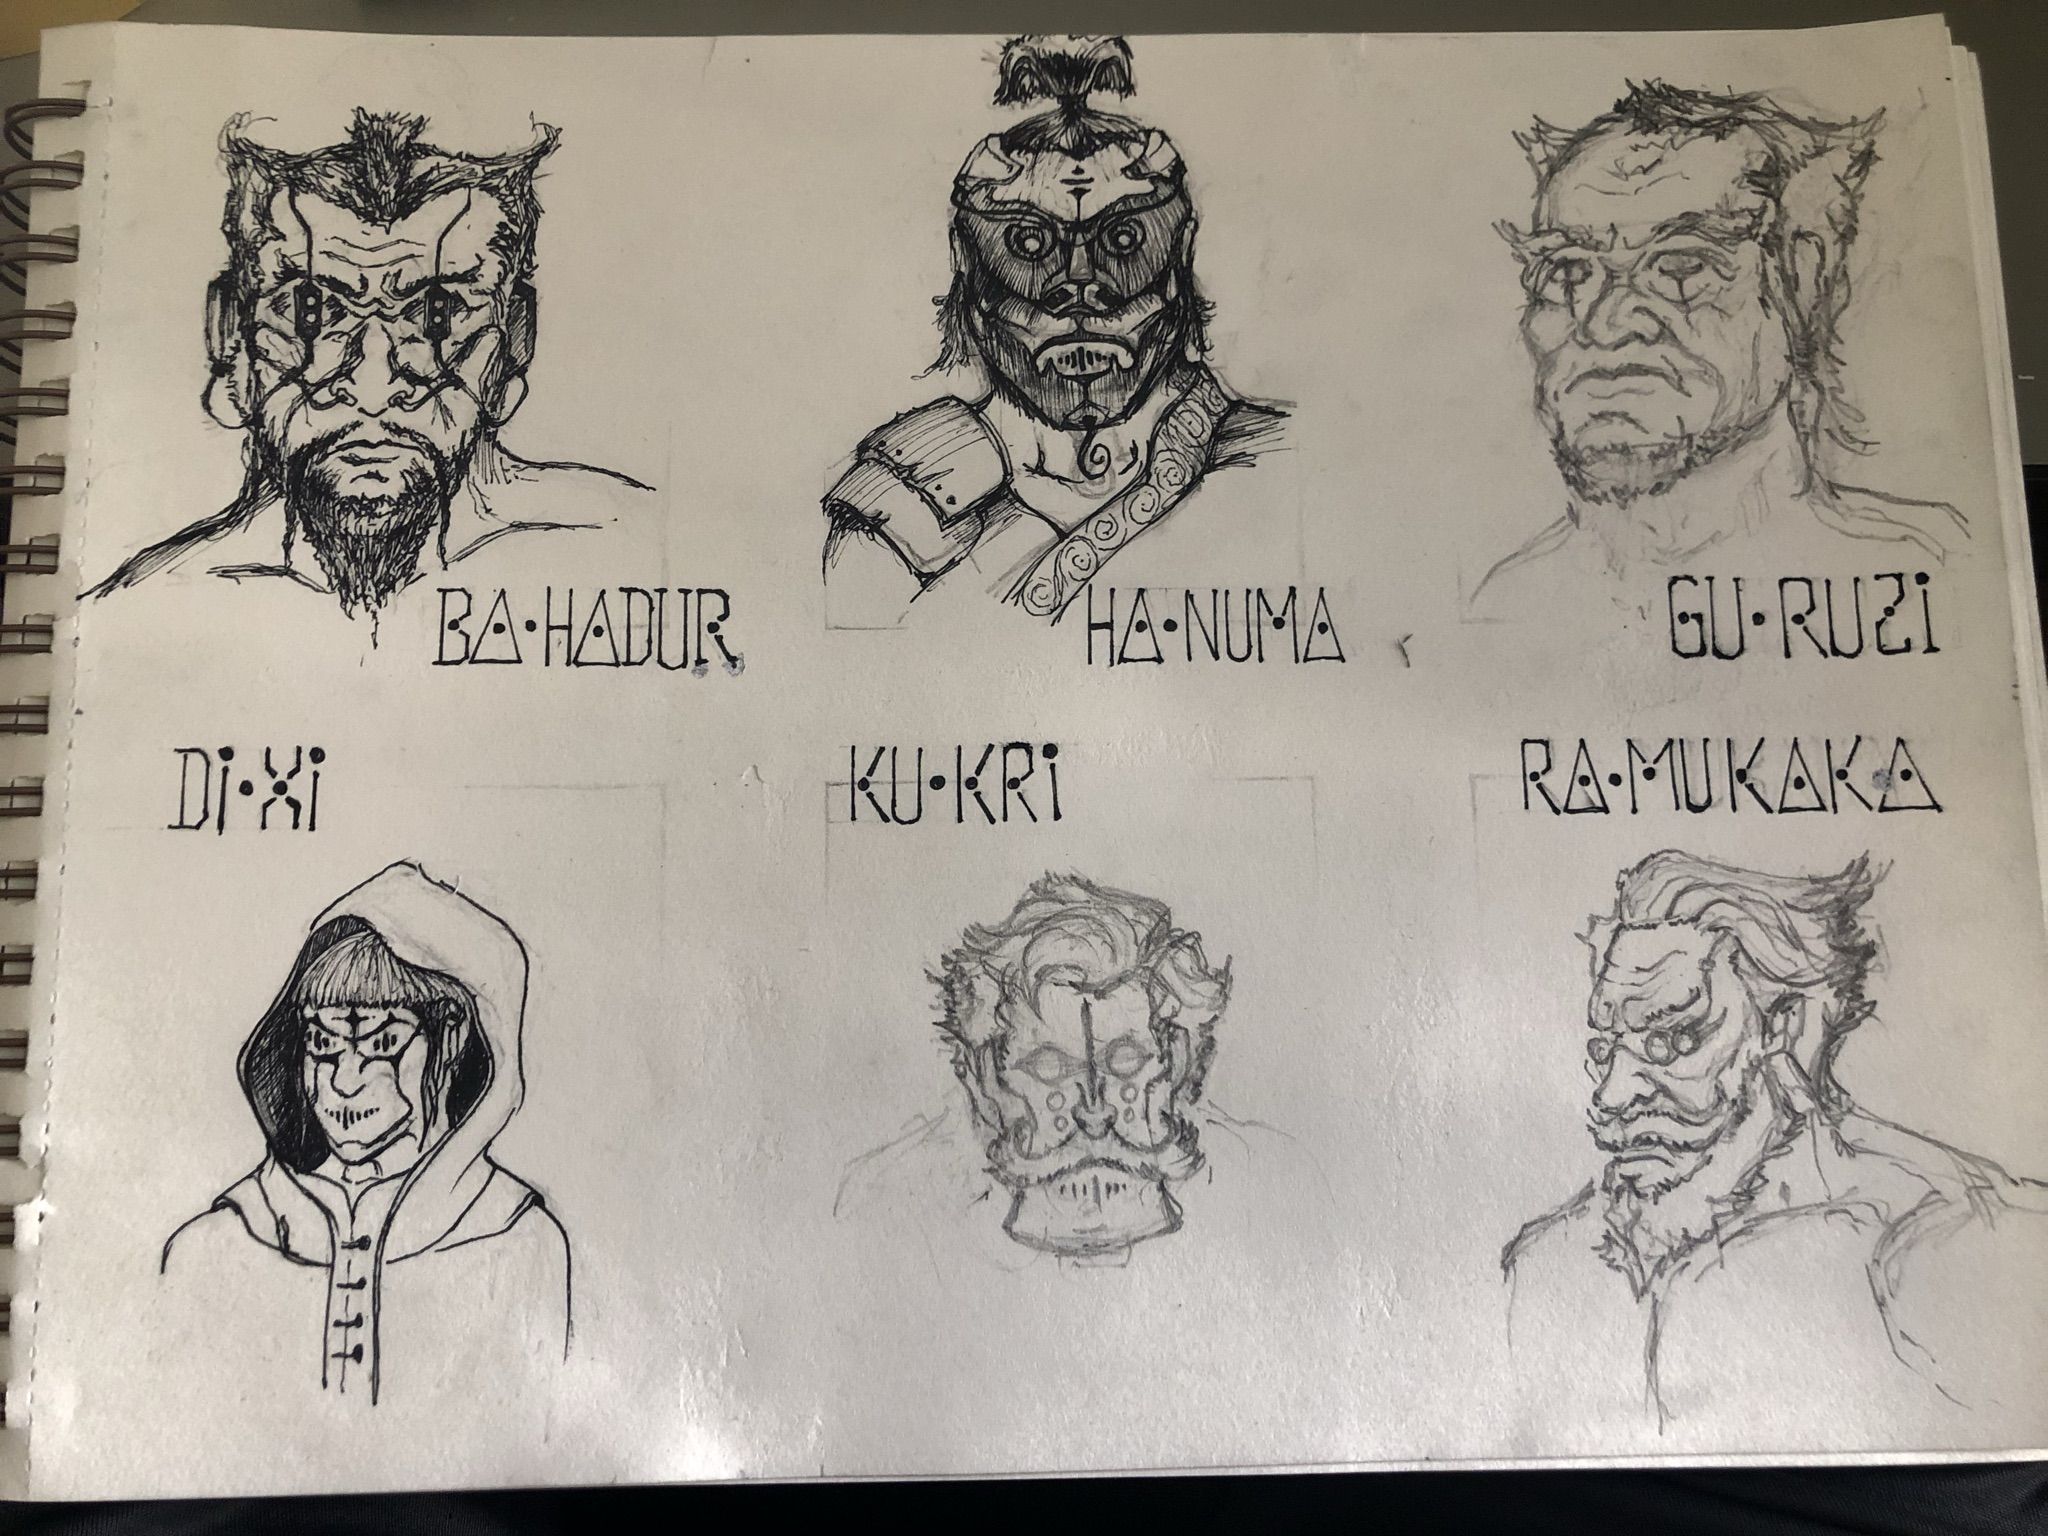 BA·HADUR
HA·NUMA
GU·RUZi
Di·Xi
KU·KRi
RA·MUKAKA